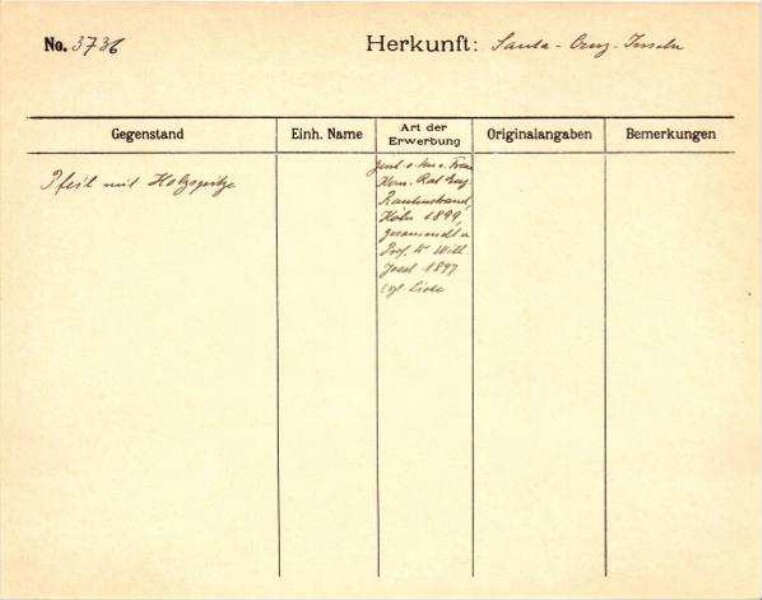 No. 3736
Herkunft: Santa-Cruz-Inseln
Gegenstand
Einh. Name
Art der
Erwerbung
Originalangaben
Bemerkungen
Pfeil mit Holzspitze
Frau
Kom. Rat Eug.
Rautenstrauch,
Köln 1899,
gesammelt v.
Prof. Dr Wilh.
Joest 1897